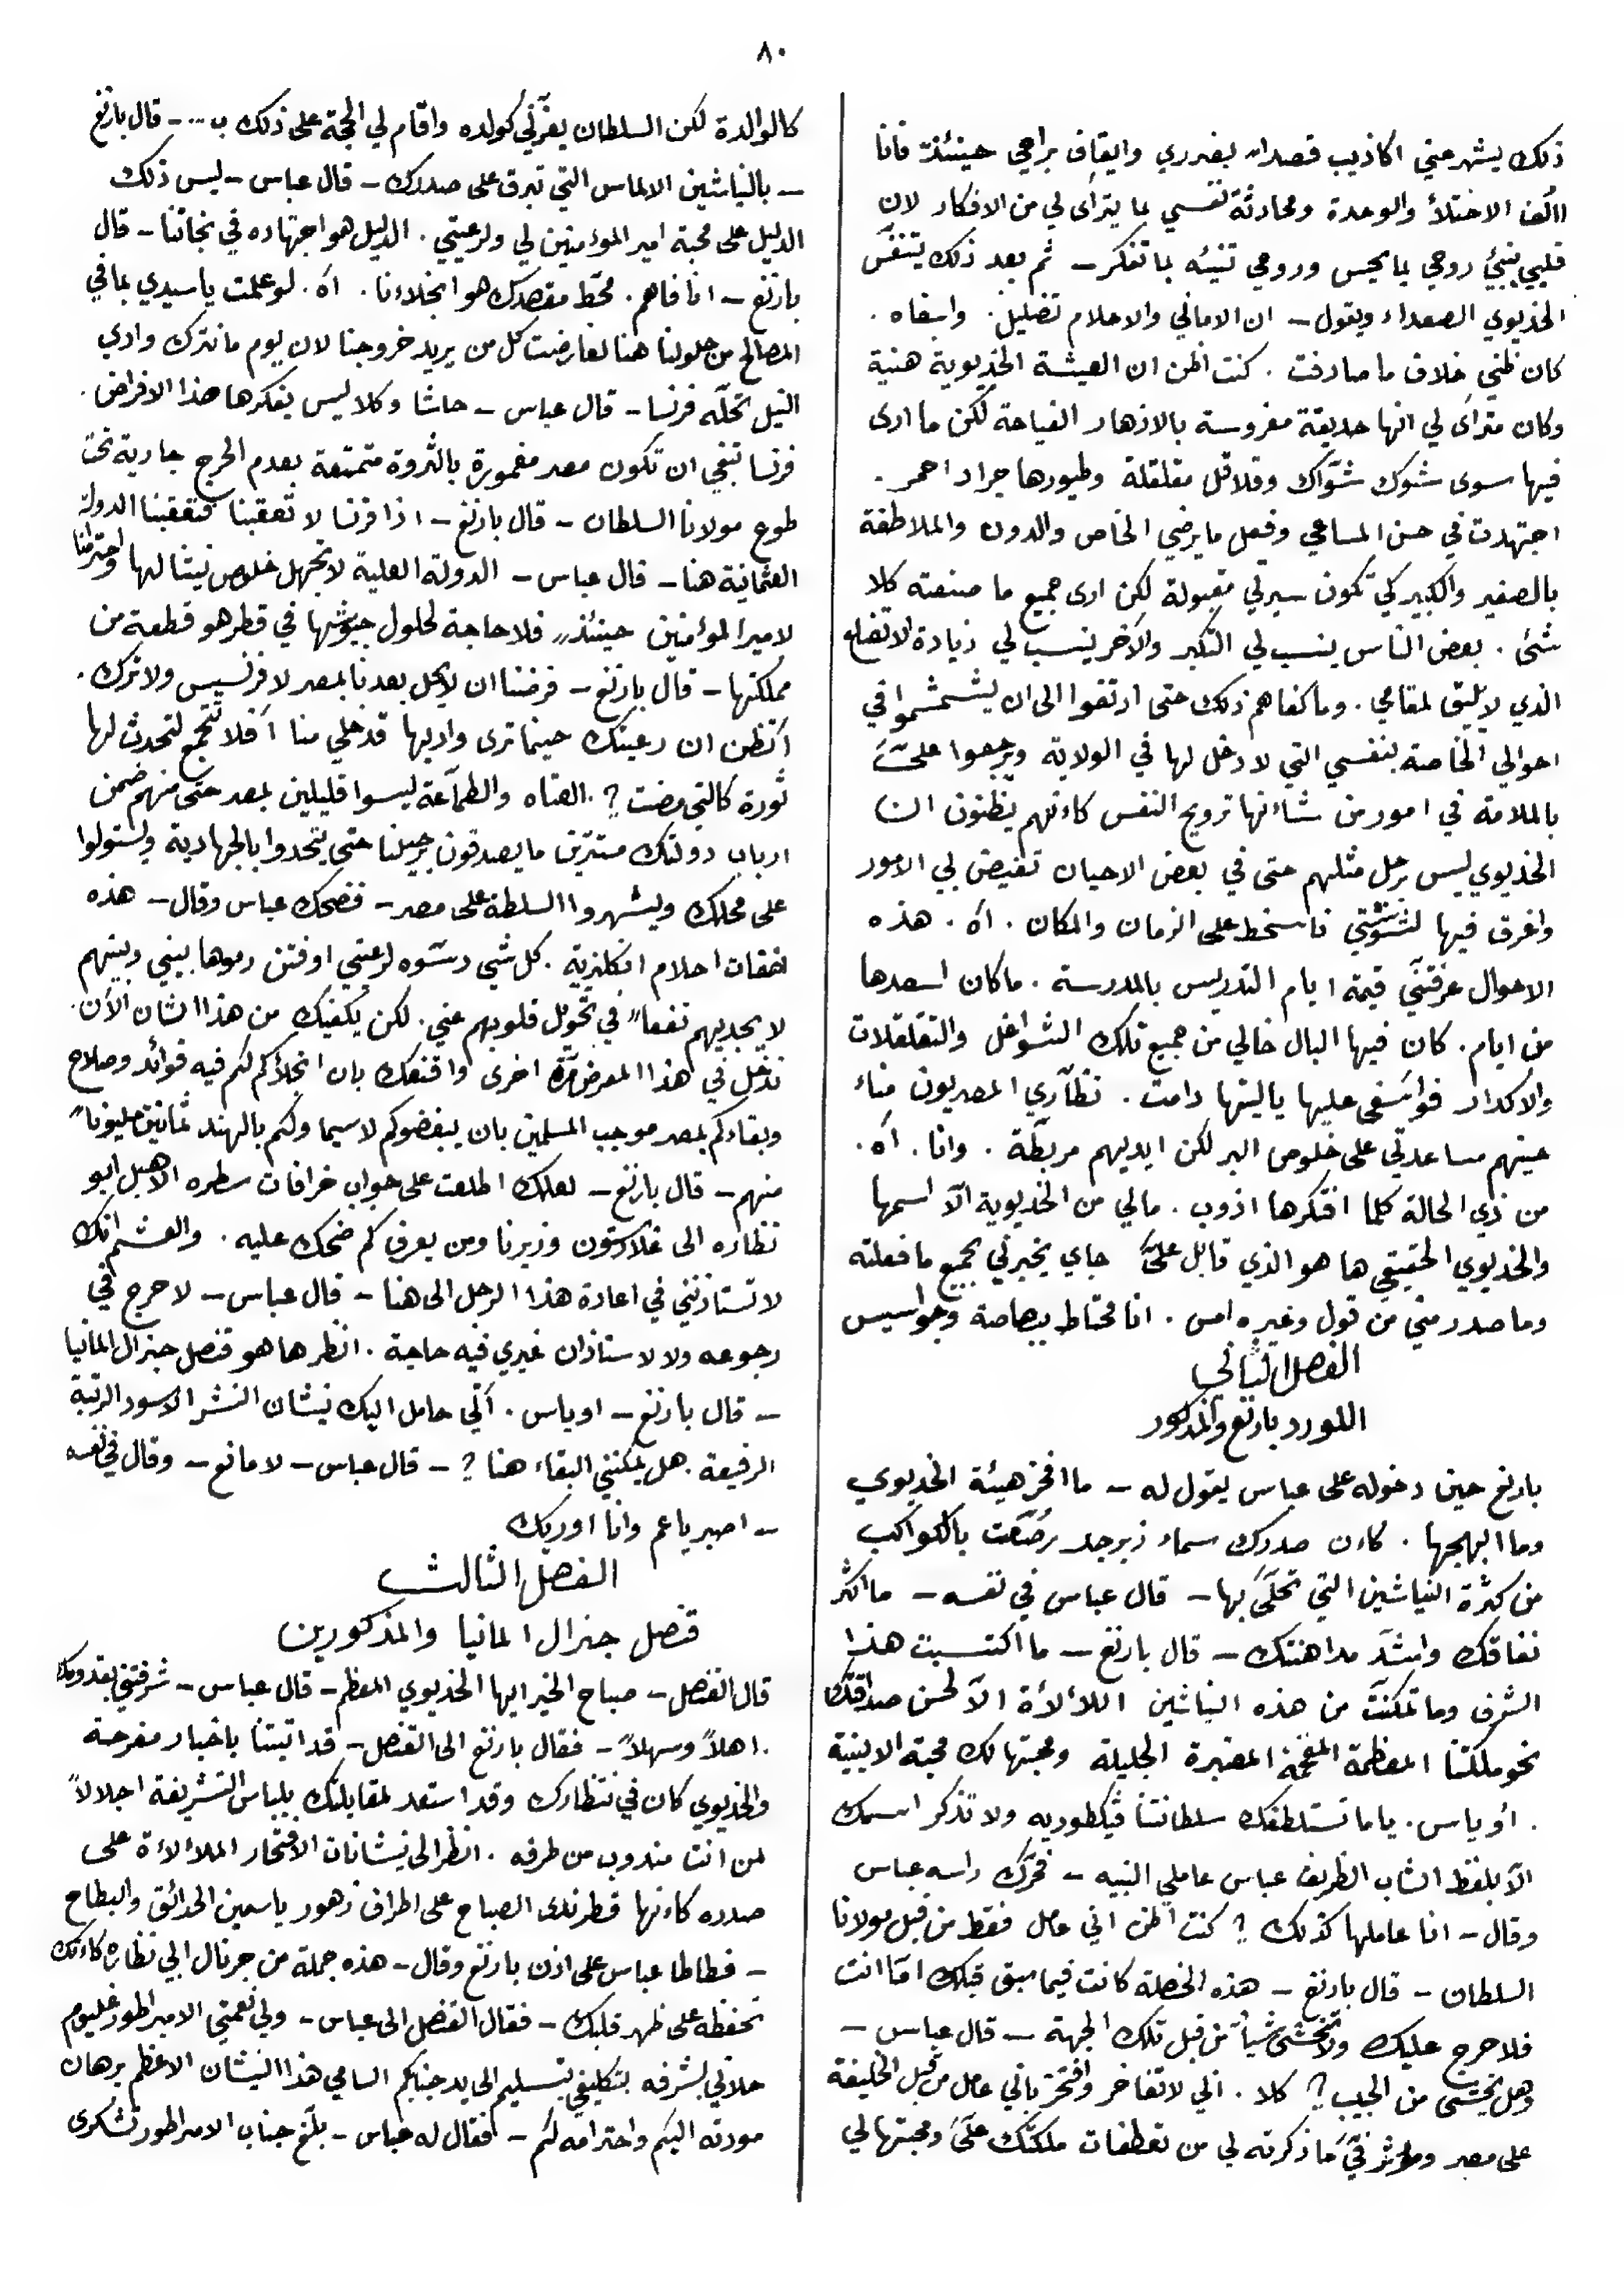 ٨٠
ذلك يشهر عني اكاذيب قصداً بضرري وايقاف براعي حينئذٍ فانا
االف الاختلأ والوحدة ومحادثة نفسي لما يترأى لي من الافكار لان
قلبي ينبئ روحي بما يحس وروحي تنبئه بما تفكر – ثم بعد ذلك يتنفس
الخديوي الصعداء ويقول – ان الاماني والاحلام تضليل . واسفاه .
كان ظني خلاف ما صادفت . كنت اظن ان العيشة الخديوية هنية
وكان مترأى لي انها حديقة مغروسة بالازهار الفياحة لكن ما ارى
فيها سوى شوك شوّاك وقلاقل مقلقلة وطيورها جراد احمر .
اجتهدت في حسن المساعي وفعل ما يرضي الخاص والدون والملاطفة
بالصغير والكبير كي تكون سيرتي مقبولة لكن ارى جميع ما صنعته كلا
شئ . بعض الناس ينسب لي التكبر والآخر ينسب لي زيادة الاتضاع
الذي لا يليق لمقامي . وما كفاهم ذلك حتى ارتقوا الى ان يشمشموا في
احوالي الخاصة بنفسي التي لا دخل لها في الولاية ويرجعوا عليّ
بالملامة في امور من شاءنها ترويح النفس كاءنهم يظنون ان
الخديوي ليس برجل مثلهم حتى في بعض الاحيان تفيض بي الامور
واغرق فيها لشوشتي فاسخط على الزمان والمكان . اه . هذه
الاحوال عرفتني قيمة ايام التدريس بالمدرسة . ما كان اسعدها
من ايام . كان فيها البال خالي من جميع تلك الشواغل والتقلقلات
والاكدار فوااسفى عليها ياليتها دامت . نظآري المصريون مناء
عينهم مساعدتي على خلوص البر لكن ايديهم مربطة . وانا . اه .
من ذي الحالة كلما افتكرها اذوب . مالي من الخديوية الآ اسمها
والخديوي الحقيقي ها هو الذي قابل عليّ جاي يخبرني بجميع ما فعلته
وما صدر مني من قول وغيره امس . انا محتاط ببصاصة وجواسيس
الفصل الثاني
اللورد بارنغ والمذكور
بارنغ حين دخوله على عباس يقول له – ما افخر هيئة الخديوي
وما ابهجها . كاءن صدرك سماء زبرجد رُصّعت بالكواكب
من كثرة النياشين التي تحلّى بها – قال عباس في نفسه – ما اكثر
نفاقك واشدّ مداهنتك – قال بارنغ – ما اكتسبت هذا
الشرف وما تمكنت من هذه النياشين اللألأة الآ لحسن صداقتك
نحو ملكتنا المعظمة المفخمة المعتبرة الجليلة ومحبتها لك محبة الابنية
. أو ياس . ياما تستلطفك سلطانتنا ڤيكطوريه ولا تذكر اسمك
الآ بلفظ الشاب الظريف عباس عاملي النبيه – فحرّك راسه عباس
وقال – انا عاملها كذلك ؟ كنت اظن اني عامل فقط من قبل مولانا
السلطان – قال بارنغ – هذه الخصلة كانت فيما سبق قبلك امّا انت
فلا حرج عليك ولا تخشى شيأً من قبل تلك الجهة – قال عباس –
وهل يخشى من الحبيب ؟ كلا . اني لاتفاخر وافتخر باني عامل من قبل الخليفة
على مصر وماثر فيّ ما ذكرته لي من تعطفات ملكتك عليّ ومحبتها لي
كالوالدة لكن السلطان يعزّني كولده واقام لي الحجة على ذلك ب ... – قال بارنغ
– بالنياشين الالماس التي تبرق على صدرك – قال عباس – ليس ذلك
الدليل على محبة امير المؤمنين لي ولرعيتي . الدليل هو اجتهاده في نجاتنا – قال
بارنغ – انا فاهم . محطّ مقصدك هو انجلاءنا . اه . لو علمت يا سيدي بما في
المصالح من حلولنا هنا لعارضت كل من يريد خروجنا لان يوم ما نترك وادي
النيل تحلّه فرنسا – قال عباس – حاشا وكلا ليس بفكرها هذا الاغراض .
فرنسا تبغي ان تكون مصر مغمورة بالثروة متمتعة بعدم الحرج جارية تحت
طوع مولانا السلطان – قال بارنغ – اذا فرنسا لا تعقبنا فتعقبنا الدولة
العثمانية هنا – قال عباس – الدولة العلية لا تجهل خلوص نيتنا لها واحترامنا
لامير المؤمنين حينئذٍ فلا حاجة لحلول جيوشها في قطر هو قطعة من
مملكتها – قال بارنغ – فرضنا ان لا يحل بعدنا بمصر لا فرنسيس ولا ترك .
اتظن ان رعيتك حينما ترى واديها قد خلي منا أفلا تتجمع لتحدث لها
ثورة كالتي مضت ؟ . العتاه والطمّاعة ليسوا قليلين بمصر حتى منهم ضمن
ارباب دولتك مستترين ما يصدقون برحيلنا حتى يتحدوا بالجهادية ويستولوا
على محلك ويشهروا السلطة على مصر – فضحك عباس وقال – هذه
اضغات احلام انكليزية . كل شي دسّوه لرعيتي او فتن رموها بيني وبينهم
لا يجديهم نفعاً في تحويل قلوبهم عني . لكن يكفيك من هذا الشان الآن .
ندخل في هذا المعرض مرّة اخرى واقنعك بان انجلاءكم لكم فيه فوائد وصلاح
وبقاءكم بمصر موجب المسلمين بان يبغضوكم لاسيما ولكم بالهند ثمانين مليوناً
منهم – قال بارنغ – لعلك اطلعت على جواب خرافات سطره الاهبل ابو
نظاره الى غلادستون وزيرنا ومن يعرف كم ضحك عليه . والعشم انك
لا تستاذنني في اعادة هذا الرجل الى هنا – قال عباس – لا حرج في
رجوعه ولا لاستاذان غيري فيه حاجة . انظر ها هو قنصل جنرال المانيا
– قال بارنغ – او ياس . اتي حامل اليك نيشان النشر الاسود الرتبة
الرفيعة . هل يمكنني البقاء هنا ؟ – قال عباس – لا مانع – وقال في نفسه
– اصبر يا عم وانا اوريك
الفصل الثالث
قنصل جنرال المانيا والمذكورين
قال القنصل – صباح الخير ايها الخديوي المعظم – قال عباس – شرفتني بقدومك
. اهلاً وسهلاً – فقال بارنغ الى القنصل – قد اتيتنا باخبار مفرحة
والخديوي كان في نتظارك وقد استعد لمقابلتك بلباس التشريفة اجلالاً
لمن انت مندوب من طرفه . انظر الى نيشانات الافتخار الملألأة على
صدره كاءنها قطر ندى الصباح على اطراف زهور ياسمين الحدائق والبطاح
– فطاطا عباس على اذن بارنغ وقال – هذه جملة من جرنال ابي نظاره كاءنك
تحفظه على ظهر قلبك – فقال القنصل الى عباس – ولي نعمتي الامبراطور غليوم
حلاني بشرفه بتكليفي بتسليم الى يد جنابكم السامي هذا النيشان الاعظم برهان
مودته اليكم واحترامه لكم – فقال له عباس – بلّغ جناب الامبراطور تشكرى